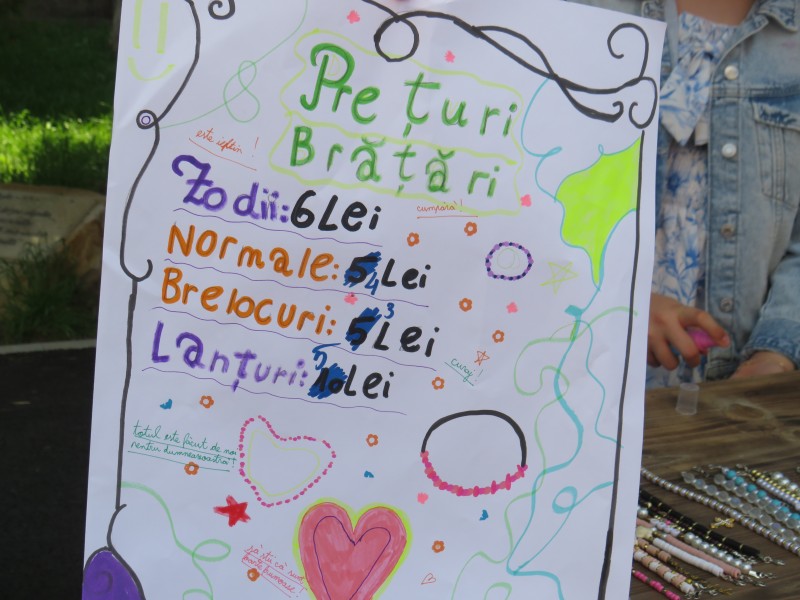 Prețuri
Brățări
este ieftin !
Zodii: 6 Lei
cumpără!
Normale: 4 Lei
Brelocuri: 3 Lei
Lanțuri: 5 Lei
curaj !
totul este făcut de noi
pentru dumneavoastră !
să știi că sunt
foarte frumoase !